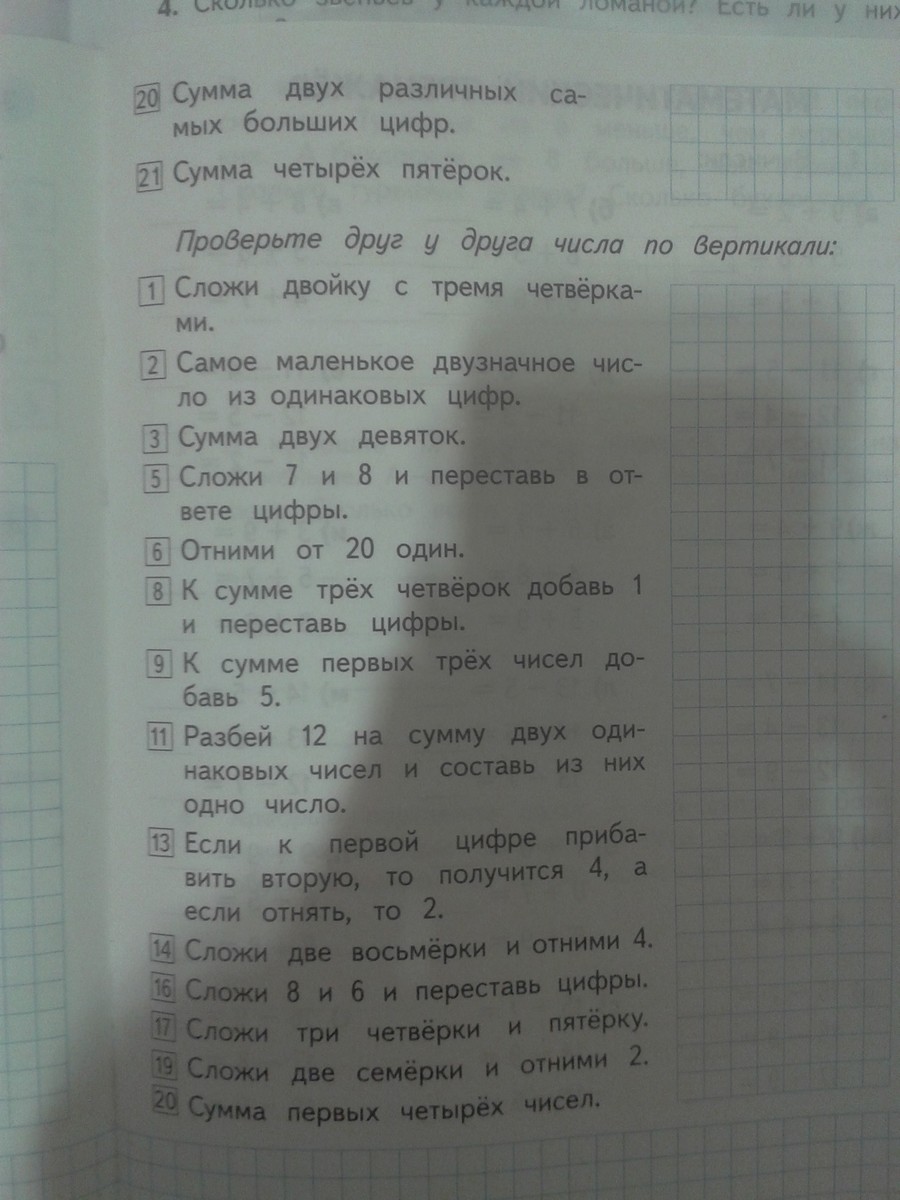 4. Сколько звеньев у каждой ломаной? Есть ли у них
20 Сумма двух различных са-
мых больших цифр.
21 Сумма четырёх пятёрок.
Проверьте друг у друга числа по вертикали:
1 Сложи двойку с тремя четвёрка-
ми.
2 Самое маленькое двузначное чис-
ло из одинаковых цифр.
3 Сумма двух девяток.
5 Сложи 7 и 8 и переставь в от-
вете цифры.
6 Отними от 20 один.
8 К сумме трёх четвёрок добавь 1
и переставь цифры.
9 К сумме первых трёх чисел до-
бавь 5.
11 Разбей 12 на сумму двух оди-
наковых чисел и составь из них
одно число.
13 Если к первой цифре приба-
вить вторую, то получится 4, а
если отнять, то 2.
14 Сложи две восьмёрки и отними 4.
16 Сложи 8 и 6 и переставь цифры.
17 Сложи три четвёрки и пятёрку.
19 Сложи две семёрки и отними 2.
20 Сумма первых четырёх чисел.